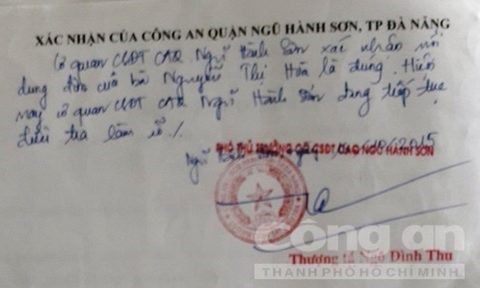 XÁC NHẬN CỦA CÔNG AN QUẬN NGŨ HÀNH SƠN, TP ĐÀ NẴNG
Cơ quan CSĐT CAQ Ngũ Hành Sơn xác nhận nội
dung đơn của bà Nguyễn Thị Hòa là đúng. Hiện
nay cơ quan CSĐT CAQ Ngũ Hành Sơn đang tiếp tục
điều tra làm rõ /.
Ngũ Hành Sơn, ngày 2015
PHÓ THỦ TRƯỞNG CQ CSĐT CAQ NGŨ HÀNH SƠN
Công an
THÀNH PHỐ HỒ CHÍ MINH
Thượng tá Ngô Đình Thu